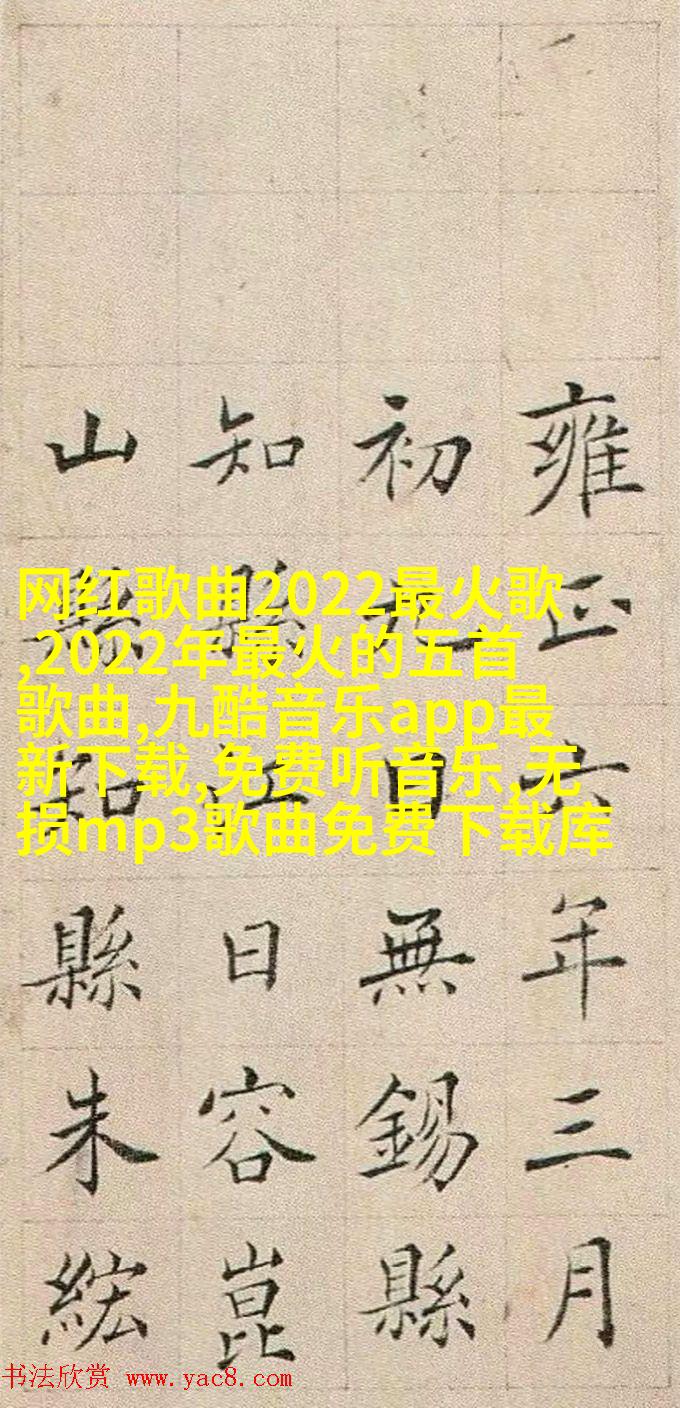 雍正六年三月
初九日無錫縣
知縣江日容崑
山縣知縣朱紘
网红歌曲2022最火歌
,2022年最火的五首
歌曲,九酷音乐app最
新下载,免费听音乐,无
损mp3歌曲免费下载库
书法欣赏 www.yac8.com